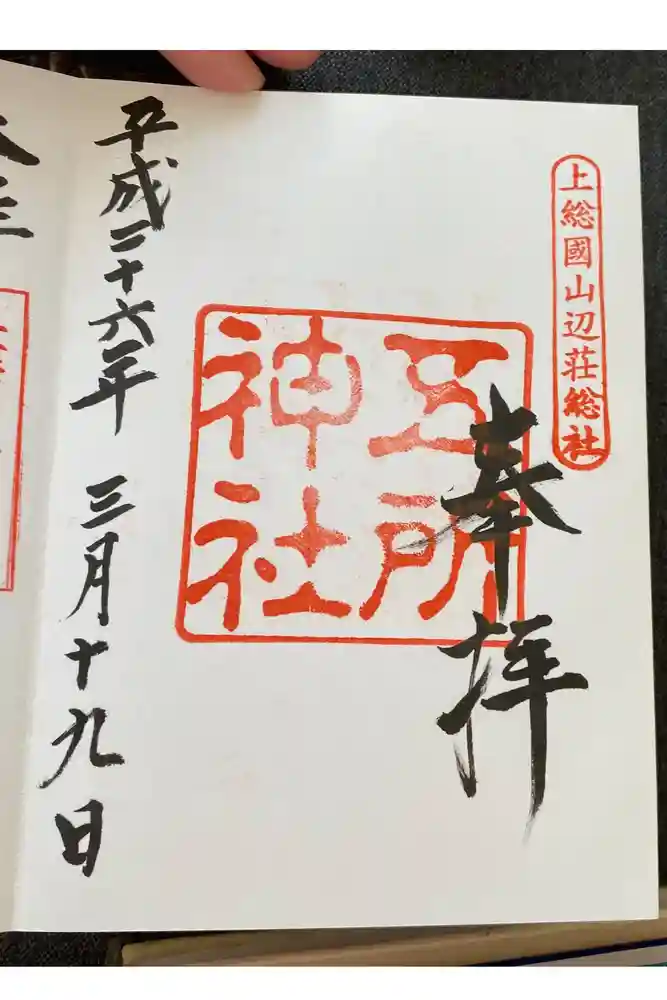 上総國山辺荘総社
奉拝
五所
神社
平成二十六年 三月十九日